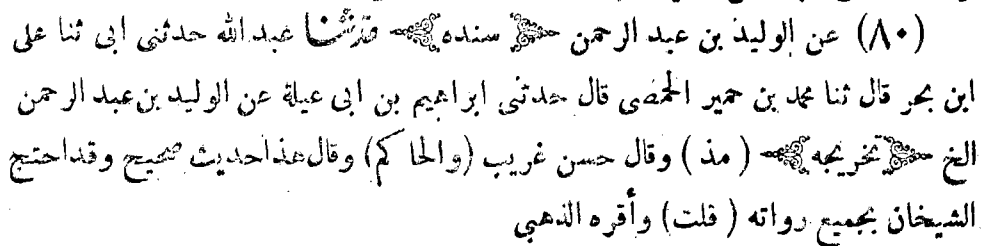 (٨٠) عن الوليد بن عبد الرحمن سنده حدثنا عبد الله حدثنى ابى ثنا على
ابن بحر قال ثنا محمد بن حمير الحمضى قال حدثنى ابراهيم بن ابى عيلة عن الوليد بن عبد الرحمن
الخ تخريجه (مذ) وقال حسن غريب (والحاكم) وقال هذا حديث صحيح وقد احتج
الشيخان بجميع رواته (قلت) وأقره الذهبى